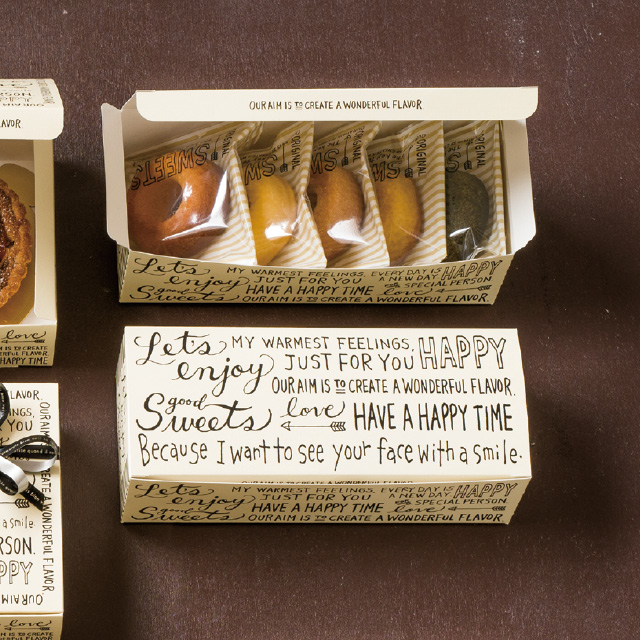 OUR AIM IS TO CREATE A WONDERFUL FLAVOR
SWEETS
ORIGINAL
SWE
ORIGINAL
SWE
ORIGINAL
SWE
ORIGINAL
ORIGINAL
Let's enjoy good Sweets
MY WARMEST FEELINGS, EVERY DAY IS HAPPY
JUST FOR YOU A NEW DAY
SPECIAL PERSON
HAVE A HAPPY TIME love
OUR AIM IS TO CREATE A WONDERFUL FLAVOR
Let's MY WARMEST FEELINGS, HAPPY
enjoy JUST FOR YOU
OUR AIM IS TO CREATE A WONDERFUL FLAVOR.
good Sweets love HAVE A HAPPY TIME
Because I want to see your face with a smile.
Let's enjoy good Sweets
MY WARMEST FEELINGS, EVERY DAY IS HAPPY
JUST FOR YOU A NEW DAY
SPECIAL PERSON
HAVE A HAPPY TIME love
OUR AIM IS TO CREATE A WONDERFUL FLAVOR
AVOR
love
M IS TO CREATE A
ERFUL FLAVOR
HAPPY TIME
LAVOR,
INGS,
YOU
OUR AIM IS TO CREATE A WONDERFUL FLAVOR
a smile
RSON.
PPY
love